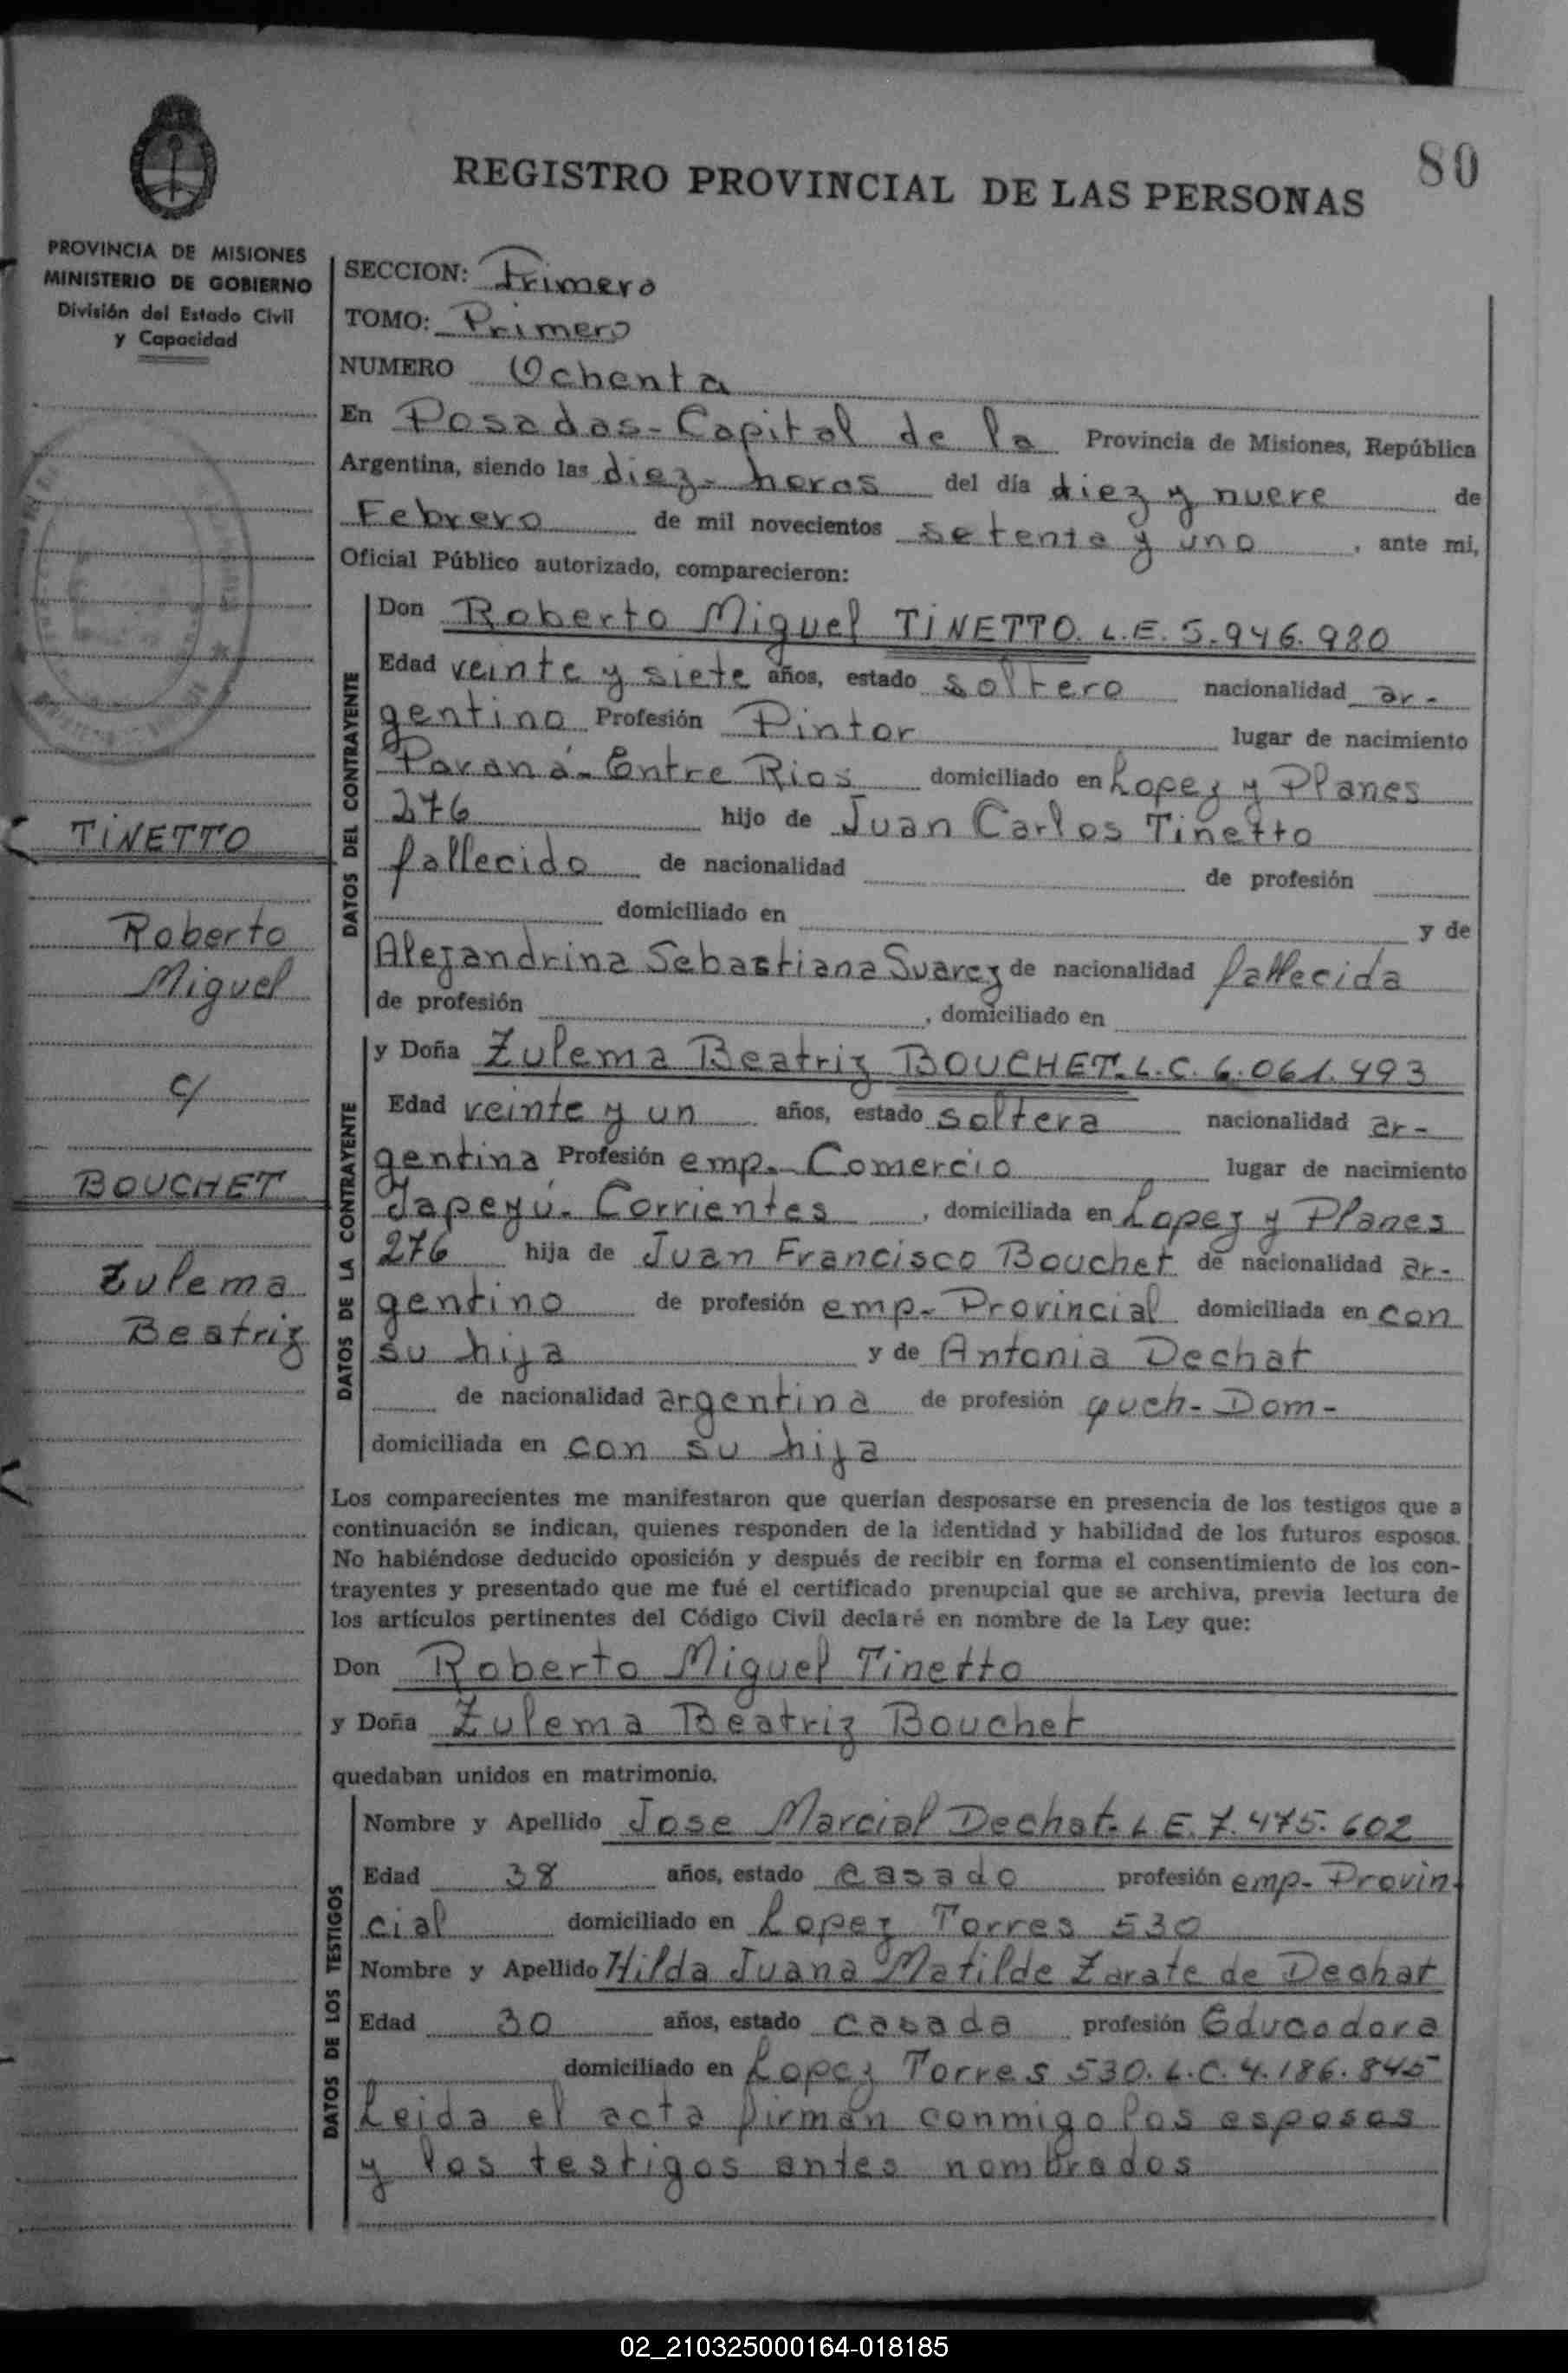 80
REGISTRO PROVINCIAL DE LAS PERSONAS
PROVINCIA DE MISIONES
MINISTERIO DE GOBIERNO
División del Estado Civil
y Capacidad
TINETTO
Roberto
Miguel
c/
BOUCHET
Zulema
Beatriz
SECCION: Primero
TOMO: Primero
NUMERO Ochenta
En Posadas - Capital de la Provincia de Misiones, República
Argentina, siendo las diez - horas del día diez y nueve de
Febrero de mil novecientos setenta y uno, ante mi,
Oficial Público autorizado, comparecieron:
DATOS DEL CONTRAYENTE
Don Roberto Miguel TINETTO. L.E. 5.946.980
Edad veinte y siete años, estado soltero nacionalidad ar-
gentino Profesión Pintor lugar de nacimiento
Paraná - Entre Rios domiciliado en Lopez y Planes
276 hijo de Juan Carlos Tinetto
fallecido de nacionalidad de profesión
domiciliado en y de
Alejandrina Sebastiana Suarez de nacionalidad fallecida
de profesión , domiciliado en
DATOS DE LA CONTRAYENTE
y Doña Zulema Beatriz BOUCHET - L.C. 6.061.493
Edad veinte y un años, estado soltera nacionalidad ar-
gentina Profesión emp. - Comercio lugar de nacimiento
Japeyú - Corrientes , domiciliada en Lopez y Planes
276 hija de Juan Francisco Bouchet de nacionalidad ar-
gentino de profesión emp - Provincial domiciliada en con
su hija y de Antonia Dechat
de nacionalidad argentina de profesión queh - Dom -
domiciliada en con su hija
Los comparecientes me manifestaron que querían desposarse en presencia de los testigos que a
continuación se indican, quienes responden de la identidad y habilidad de los futuros esposos.
No habiéndose deducido oposición y después de recibir en forma el consentimiento de los con-
trayentes y presentado que me fué el certificado prenupcial que se archiva, previa lectura de
los artículos pertinentes del Código Civil declaré en nombre de la Ley que:
Don Roberto Miguel Tinetto
y Doña Zulema Beatriz Bouchet
quedaban unidos en matrimonio.
DATOS DE LOS TESTIGOS
Nombre y Apellido Jose Marcial Dechat - L E. 7.475.602
Edad 38 años, estado casado profesión emp - Provin-
cial domiciliado en Lopez Torres 530
Nombre y Apellido Hilda Juana Matilde Zarate de Dechat
Edad 30 años, estado casada profesión Educadora
domiciliado en Lopez Torres 530. L.C. 4.186.845
Leida el acta firman conmigo los esposos
y los testigos antes nombrados
02_210325000164-018185